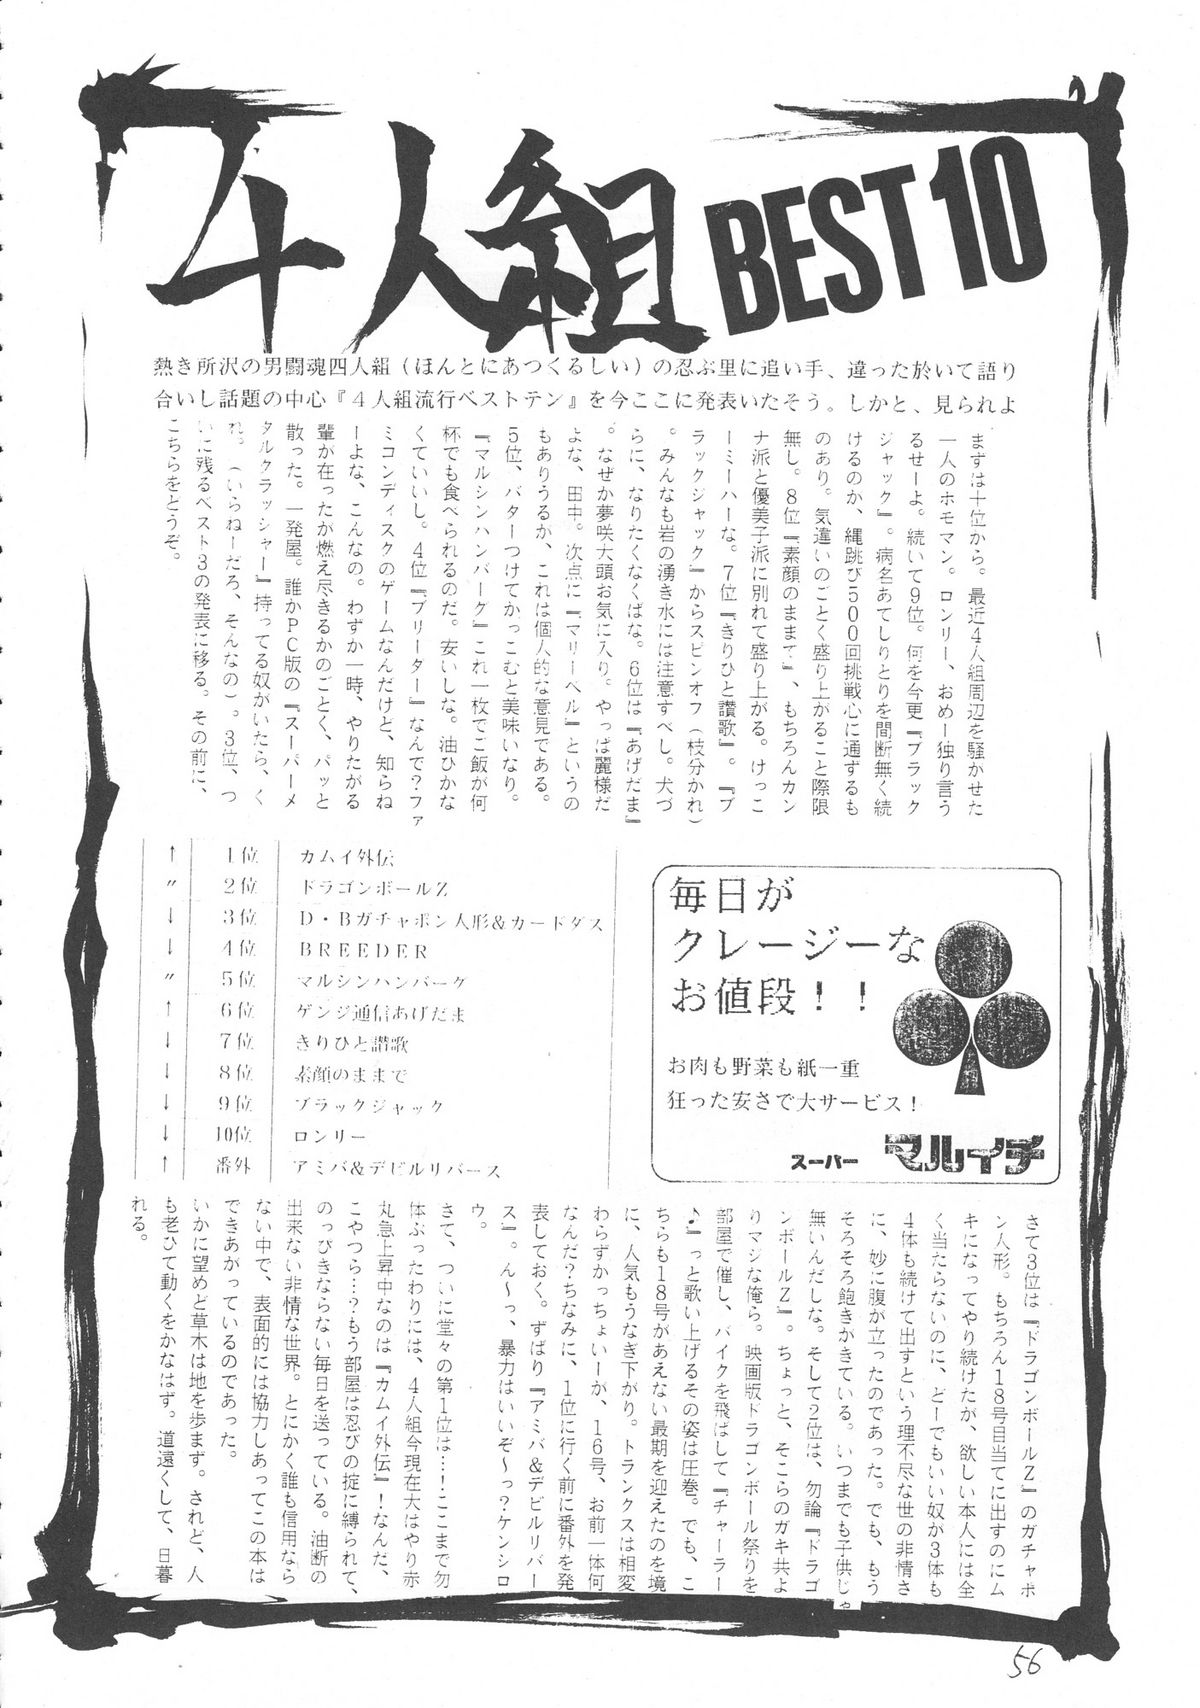 4人組 BEST10
熱き所沢の男闘魂四人組（ほんとにあつくるしい）の忍ぶ里に追い手、違った於いて語り
合いし話題の中心『４人組流行ベストテン』を今ここに発表いたそう。しかと、見られよ
まずは十位から。最近４人組周辺を騒がせた
一人のホモマン。ロンリー、おめー独り言う
るせーよ。続いて９位。何を今更『ブラック
ジャック』。病名あてしりとりを間断無く続
けるのか、縄跳び５００回挑戦心に通ずるも
のあり。気違いのごとく盛り上がること際限
無し。８位『素顔のままで』、もちろんカン
ナ派と優美子派に別れて盛り上がる。けっこ
ーミーハーな。７位『きりひと讃歌』。『ブ
ラックジャック』からスピンオフ（枝分かれ）
。みんなも岩の湧き水には注意すべし。犬づ
らに、なりたくなくばな。６位は『あげだま』
。なぜか夢咲大頭お気に入り。やっぱ麗様だ
よな、田中。次点に『マリーベル』というの
もありうるが、これは個人的な意見である。
５位、バターつけてかっこむと美味いなり。
『マルシンハンバーグ』これ一枚でご飯が何
杯でも食べられるのだ。安いしな。油ひかな
くていいし。４位『ブリーター』なんで？ファ
ミコンディスクのゲームなんだけど、知らね
ーよな、こんなの。わずか一時、やりたがる
輩が在ったが燃え尽きるかのごとく、パッと
散った。一発屋。誰かＰＣ版の『スーパーメ
タルクラッシャー』持ってる奴がいたら、く
れ。（いらねーだろ、そんなの）。３位、つ
いに残るベスト３の発表に移る。その前に、
こちらをとうぞ。
↑ 1位 カムイ外伝
〃 2位 ドラゴンボールＺ
↓ 3位 Ｄ・Ｂガチャポン人形＆カードダス
↓ 4位 ＢＲＥＥＤＥＲ
〃 5位 マルシンハンバーグ
↑ 6位 ゲンジ通信あげだま
↓ 7位 きりひと讃歌
↓ 8位 素顔のままで
↓ 9位 ブラックジャック
↓ 10位 ロンリー
↑ 番外 アミバ＆デビルリバース
毎日が
クレージーな
お値段！！
お肉も野菜も紙一重
狂った安さで大サービス！
スーパー マルイチ
さて３位は『ドラゴンボールＺ』のガチャポ
ン人形。もちろん１８号目当てに出すのにム
キになってやり続けたが、欲しい本人には全
く当たらないのに、どーでもいい奴が３体も
４体も続けて出すという理不尽な世の非情さ
に、妙に腹が立ったのであった。でも、もう
そろそろ飽きがきている。いつまでも子供じゃ
無いんだしな。そして２位は、勿論『ドラゴ
ンボールＺ』。ちょっと、そこらのガキ共よ
りマジな俺ら。映画版ドラゴンボール祭りを
部屋で催し、バイクを飛ばして『チャーラー
♪』っと歌い上げるその姿は圧巻。でも、こ
ちらも１８号があえない最期を迎えたのを境
に、人気もうなぎ下がり。トランクスは相変
わらずかっちょいーが、１６号、お前一体何
なんだ？ちなみに、１位に行く前に番外を発
表しておく。ずばり『アミバ＆デビルリバー
ス』。ん～っ、暴力はいいぞ～っ？ケンシロ
ウ。
さて、ついに堂々の第１位は…！ここまで勿
体ぶったわりには、４人組今現在大はやり赤
丸急上昇中なのは『カムイ外伝』！なんだ、
こやつら…？もう部屋は忍びの掟に縛られて、
のっぴきならない毎日を送っている。油断の
出来ない非情な世界。とにかく誰も信用なら
ない中で、表面的には協力しあってこの本は
できあがっているのであった。
いかに望めど草木は地を歩まず。されど、人
も老ひて動くをかなはず。道遠くして、日暮
れる。
56